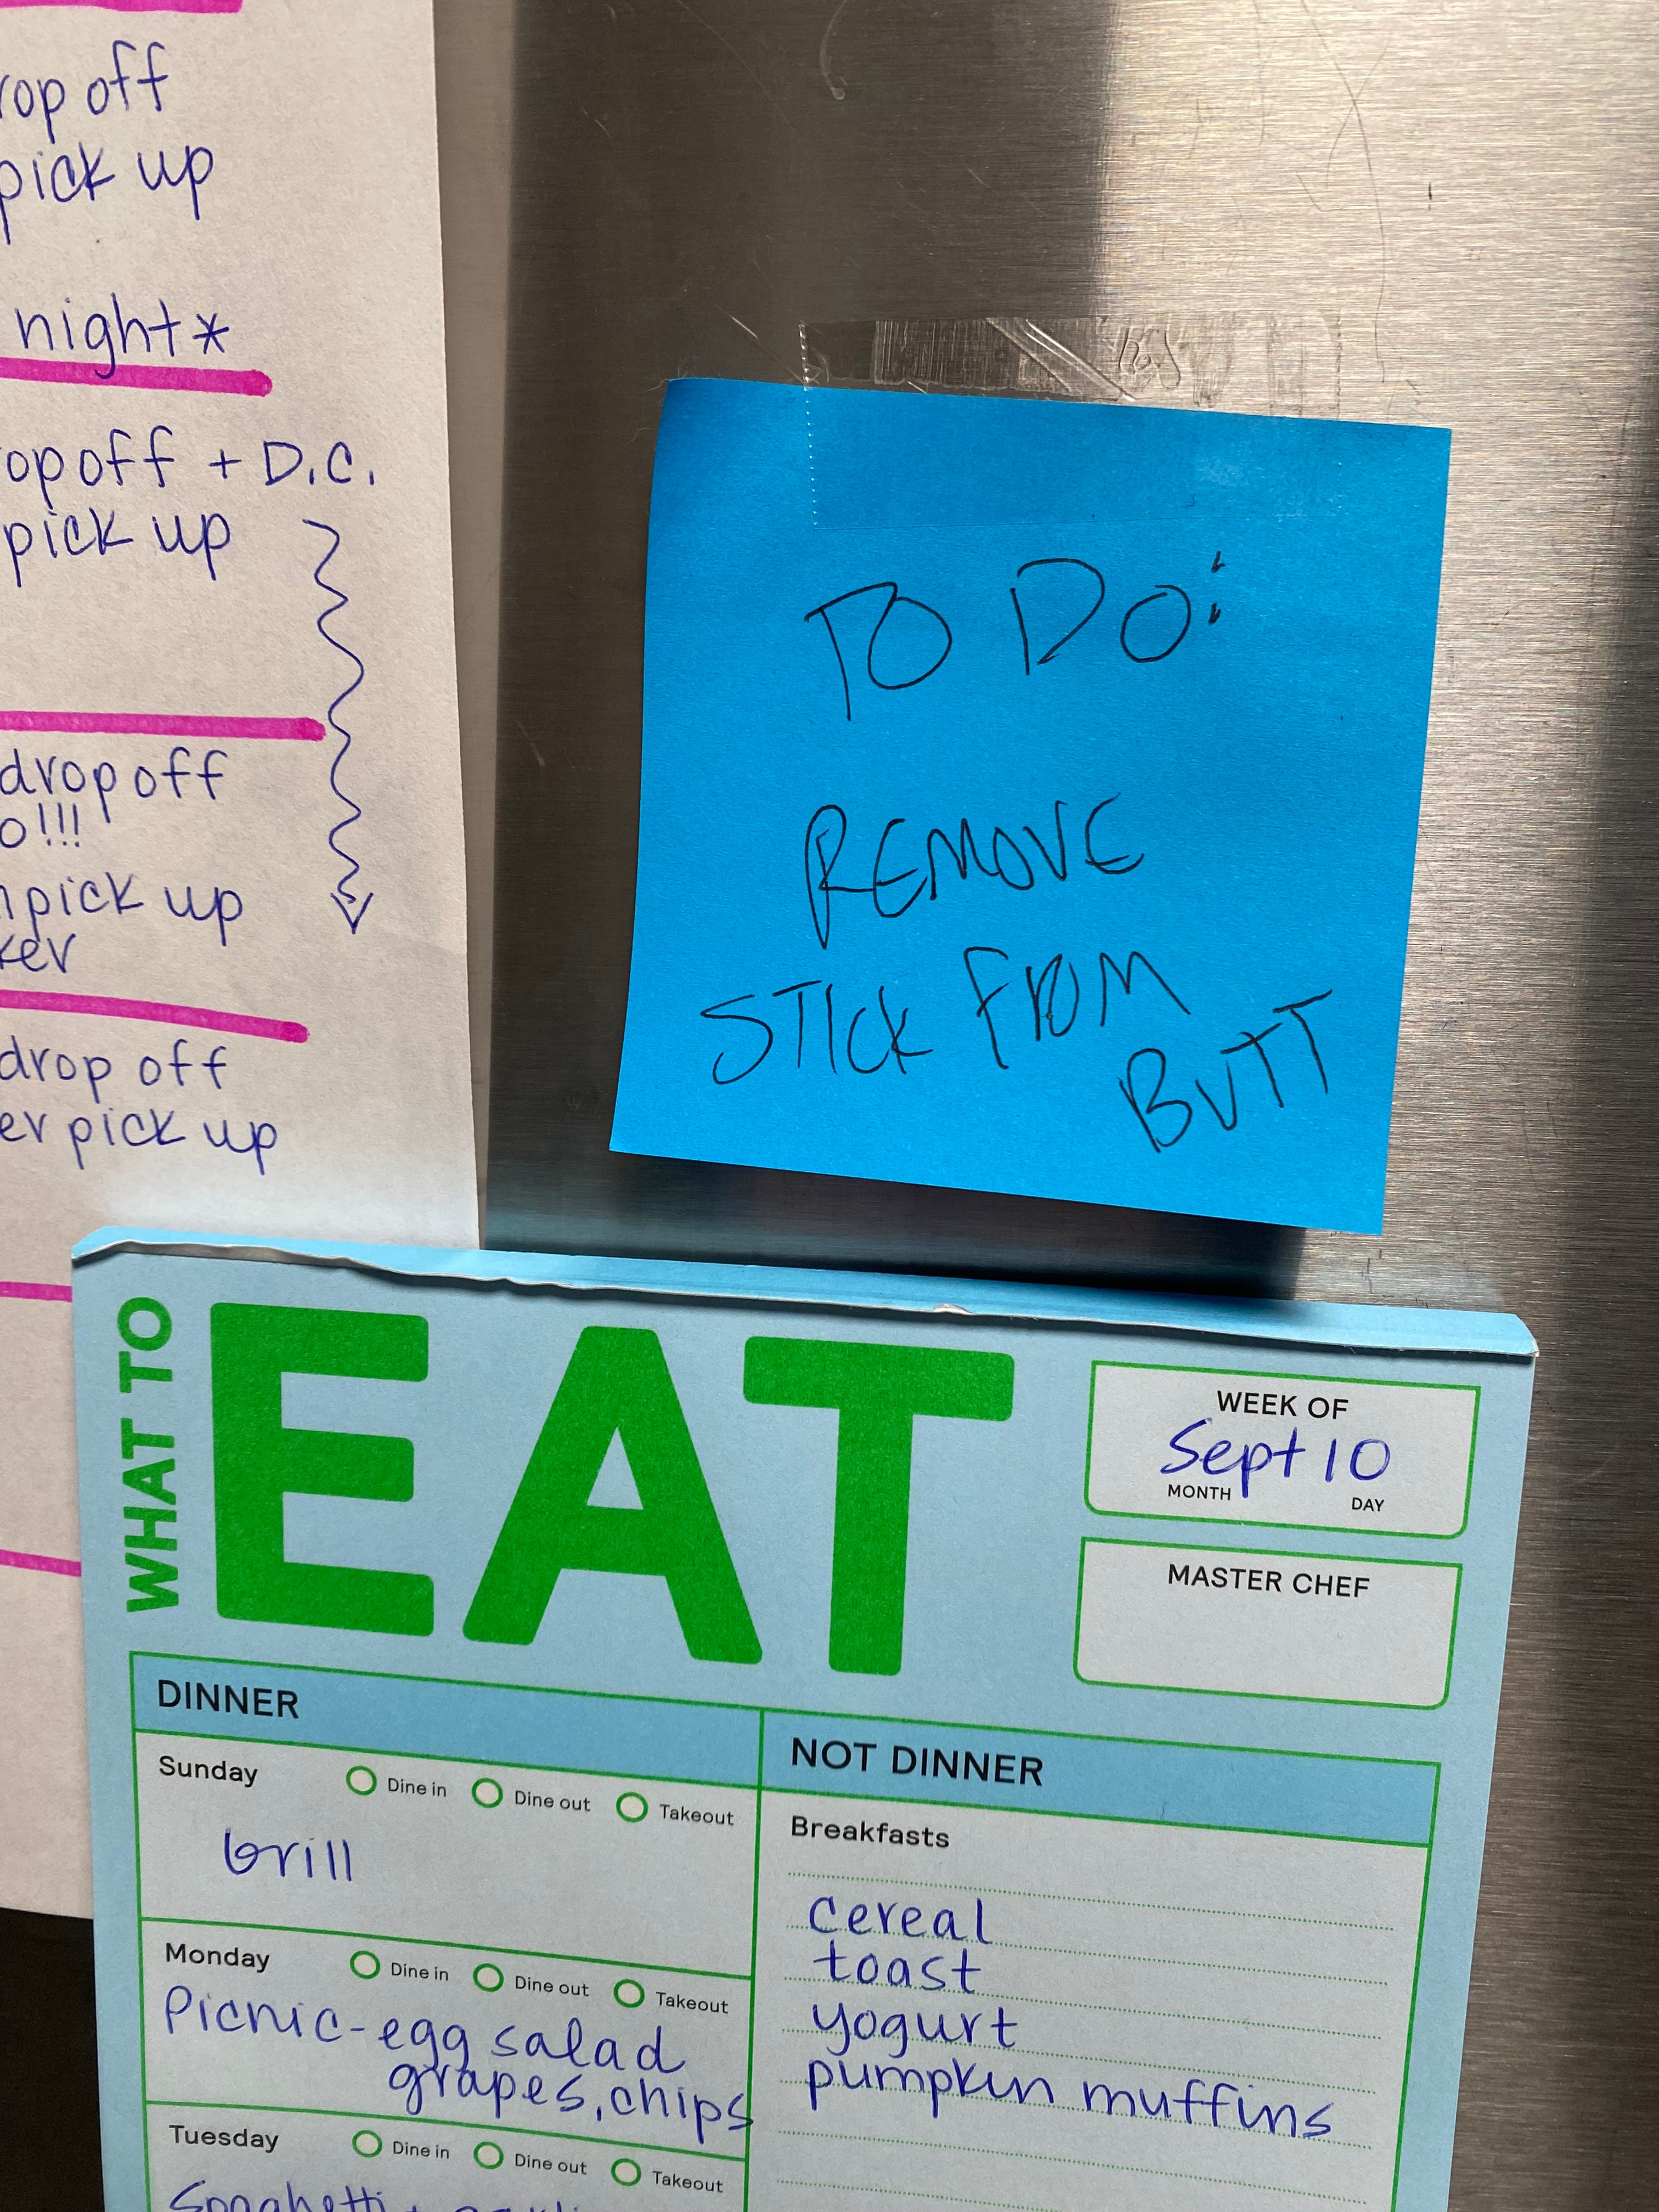 rop off
pick up
night*
op off + D.C.
pick up
drop off
o!!!
pick up
ker
drop off
er pick up
TO DO:
REMOVE
STICK FROM
BUTT
WHAT TO
EAT
WEEK OF
Sept 10
MONTH DAY
MASTER CHEF
DINNER
Sunday Dine in Dine out Takeout
Grill
Monday Dine in Dine out Takeout
Picnic-egg salad
grapes, chips
Tuesday Dine in Dine out Takeout
Spaghetti
NOT DINNER
Breakfasts
cereal
toast
yogurt
pumpkin muffins